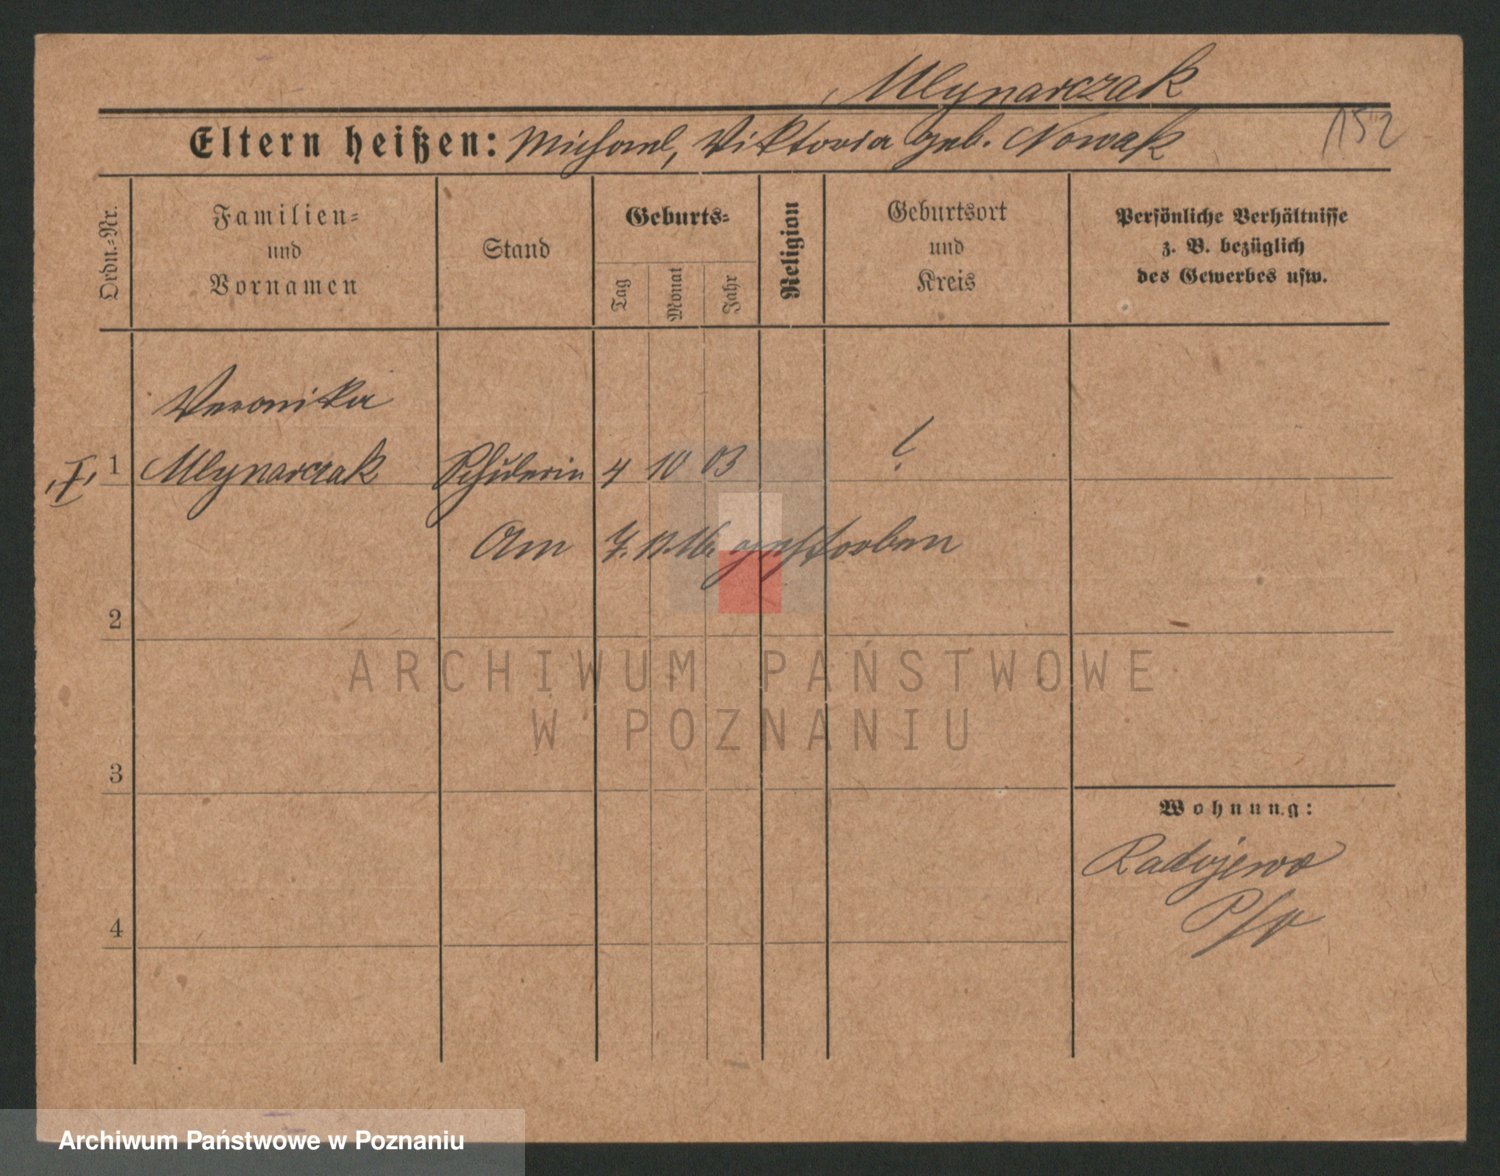 Mlynarczak
Eltern heißen: Michael, Viktoria geb. Nowak
152
Ordn.-Nr.
Familien-
und
Vornamen
Stand
Geburts-
Tag
Monat
Jahr
Religion
Geburtsort
und
Kreis
Persönliche Verhältnisse
z. B. bezüglich
des Gewerbes usw.
Veronika
1 Mlynarczak Schülerin 4 10 03 ?
Am 7. 11. 16. gestorben
2
ARCHIWUM PAŃSTWOWE
W POZNANIU
3
Wohnung:
Radojewo
4
Archiwum Państwowe w Poznaniu